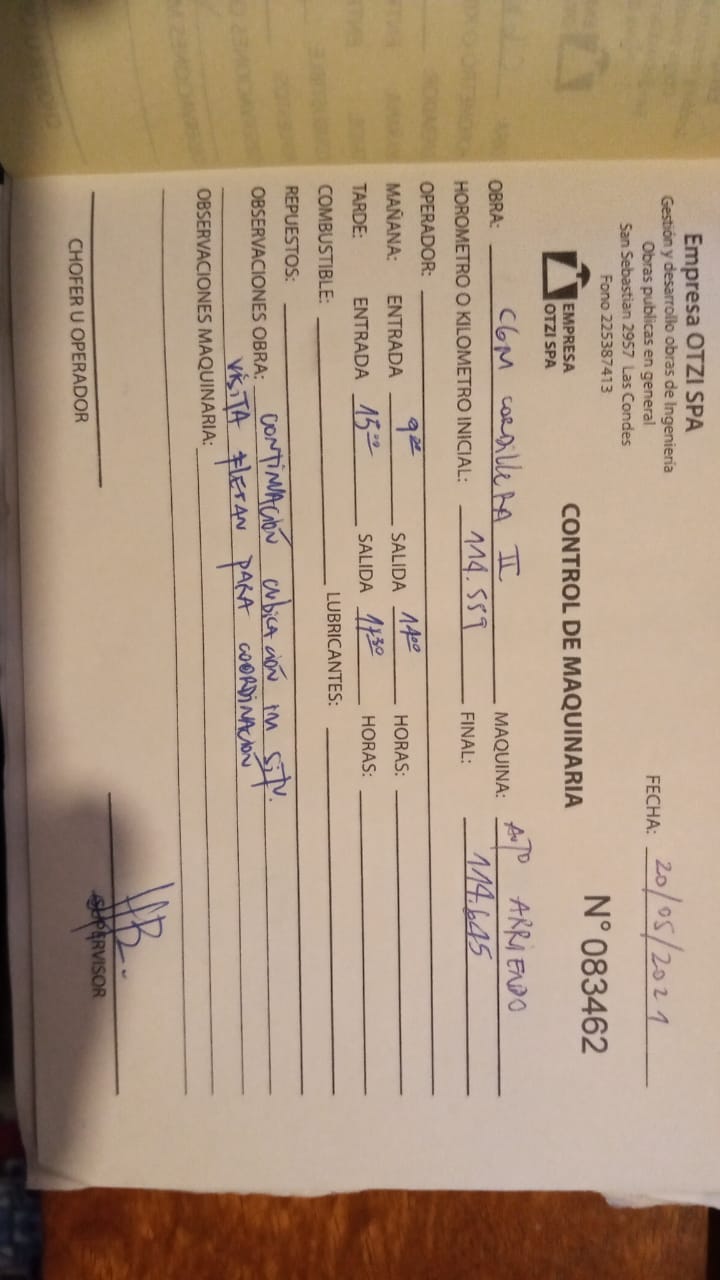 Empresa OTZI SPA
Gestión y desarrollo obras de Ingeniería
Obras publicas en general
San Sebastian 2957 Las Condes
Fono 225387413
FECHA: 20/05/2021
N° 083462
EMPRESA
OTZI SPA
CONTROL DE MAQUINARIA
OBRA: CGM CORDILLERA II MAQUINA: AUTO ARRIENDO
HOROMETRO O KILOMETRO INICIAL: 114.559 FINAL: 114.645
OPERADOR:
MAÑANA: ENTRADA 9 SALIDA 14⁰⁰ HORAS:
TARDE: ENTRADA 15⁰⁰ SALIDA 17³⁰ HORAS:
COMBUSTIBLE: LUBRICANTES:
REPUESTOS:
OBSERVACIONES OBRA: CONTINUACIÓN CUBICACIÓN IN SITU.
VISITA FLETAN PARA COORDINACIÓN
OBSERVACIONES MAQUINARIA:
CHOFER U OPERADOR
SUPERVISOR